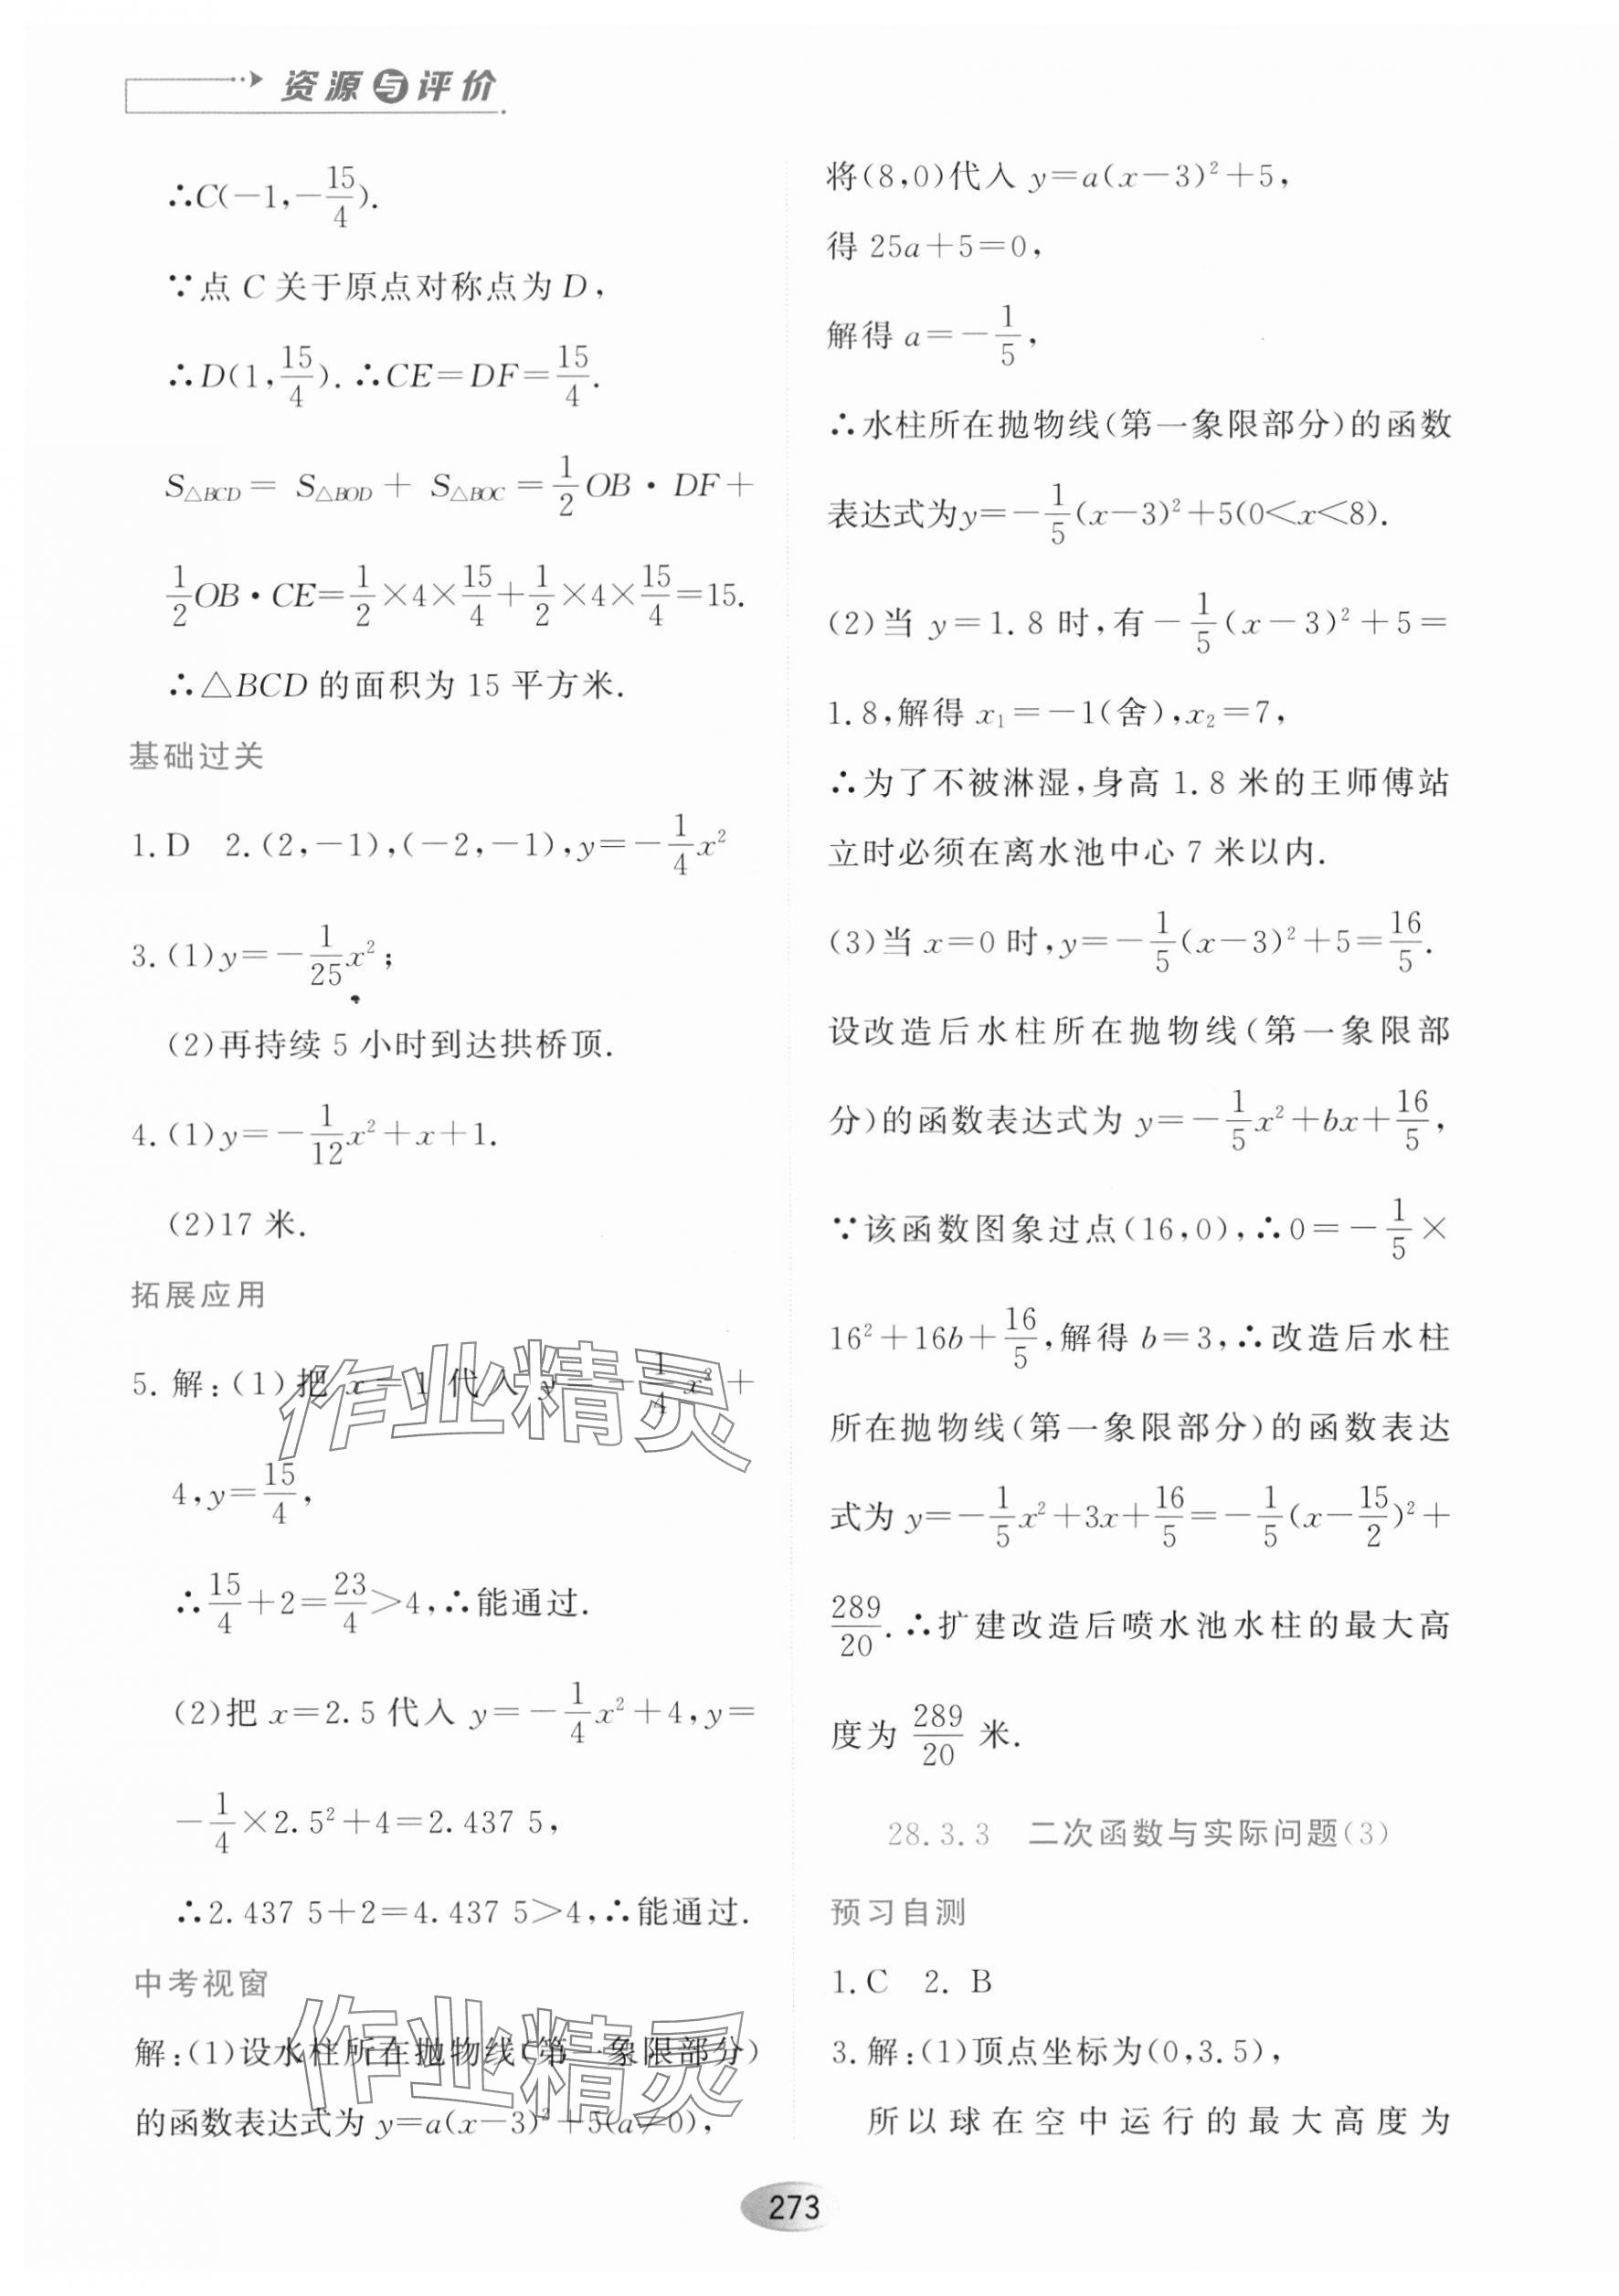 资源与评价
∴C(−1,−15/4).
∵点 C 关于原点对称点为 D,
∴D(1,15/4).∴CE=DF=15/4.
S△BCD= S△BOD + S△BOC =1/2OB· DF+
1/2OB·CE=1/2×4×15/4+1/2×4×15/4=15.
∴△BCD 的面积为 15 平方米.
基础过关
1.D 2.(2,−1),(−2,−1),y=−1/4x²
3.(1)y=−1/25x²;
(2)再持续 5 小时到达拱桥顶.
4.(1)y=−1/12x²+x+1.
(2)17 米.
拓展应用
5.解:(1)把 x=1 代入 y=−1/4x²+
4,y=15/4,
∴15/4+2=23/4>4,∴能通过.
(2)把 x=2.5代入 y=−1/4x²+4,y=
−1/4×2.5²+4=2.437 5,
∴2.437 5+2=4.437 5>4,∴能通过.
中考视窗
解:(1)设水柱所在抛物线(第一象限部分)
的函数表达式为 y=a(x−3)²+5(a≠0),
将(8,0)代入 y=a(x−3)²+5,
得 25a+5=0,
解得 a=−1/5,
∴水柱所在抛物线(第一象限部分)的函数
表达式为y=−1/5(x−3)²+5(0<x<8).
(2)当 y=1.8 时,有−1/5(x−3)²+5=
1.8,解得 x₁=−1(舍),x₂=7,
∴为了不被淋湿,身高 1.8 米的王师傅站
立时必须在离水池中心 7 米以内.
(3)当 x=0 时,y=−1/5(x−3)²+5=16/5.
设改造后水柱所在抛物线(第一象限部
分)的函数表达式为 y=−1/5x²+bx+16/5,
∵该函数图象过点(16,0),∴0=−1/5×
16²+16b+16/5,解得 b=3,∴改造后水柱
所在抛物线(第一象限部分)的函数表达
式为 y=−1/5x²+3x+16/5=−1/5(x−15/2)²+
289/20.∴扩建改造后喷水池水柱的最大高
度为 289/20 米.
28.3.3 二次函数与实际问题(3)
预习自测
1.C 2. B
3.解:(1)顶点坐标为(0,3.5),
所以球在空中运行的最大高度为
273
作业精灵
作业精灵